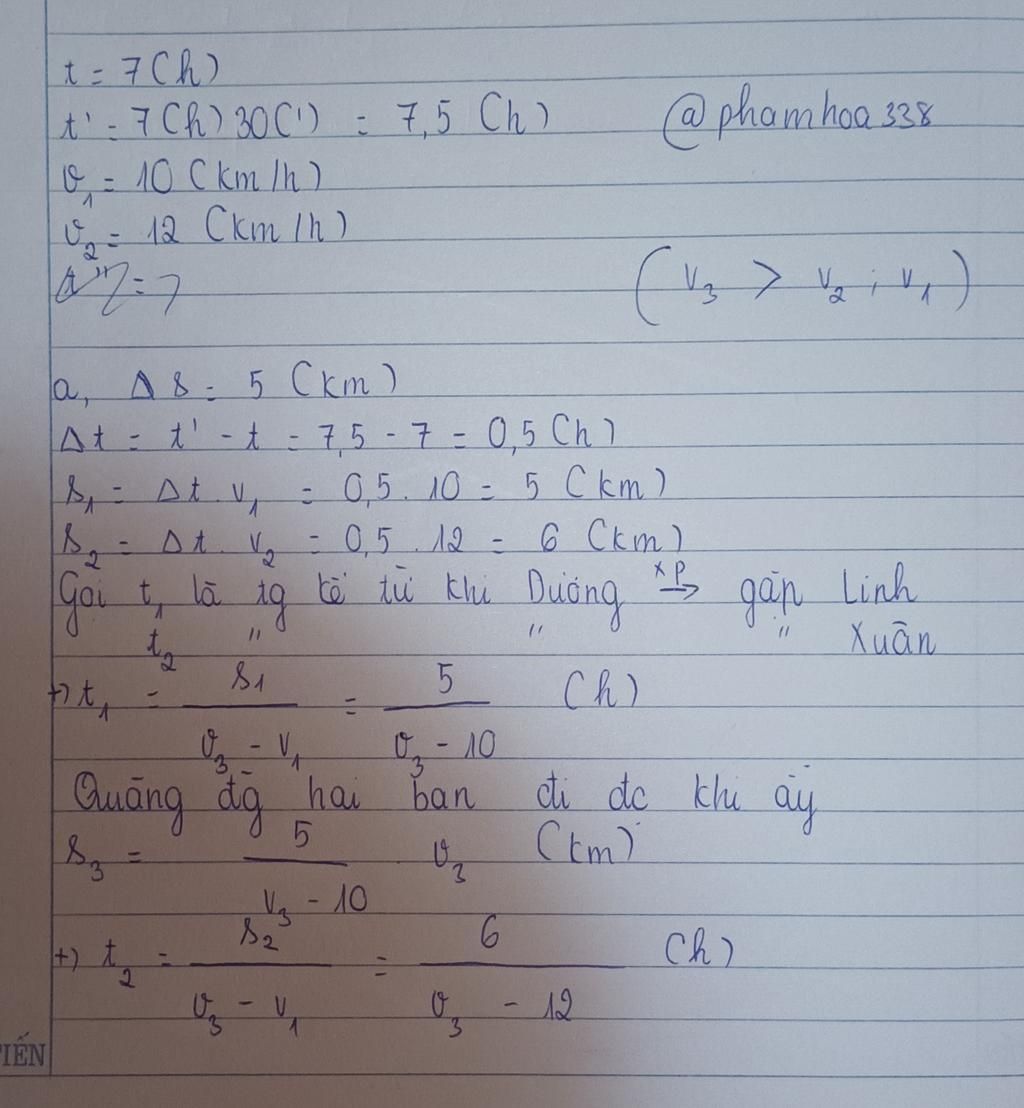 t = 7(h)
t' = 7(h) 30(') = 7,5 (h) @phamhoa338
v₁ = 10 (km/h)
v₂ = 12 (km/h)
(v₃ > v₂ ; v₁)
a, Δs = 5 (km)
Δt = t' - t = 7,5 - 7 = 0,5 (h)
s₁ = Δt . v₁ = 0,5 . 10 = 5 (km)
s₂ = Δt . v₂ = 0,5 . 12 = 6 (km)
Gọi t₁ là tg kể từ khi Dương xp → gặp Linh
t₂ " " " Xuân
+) t₁ = s₁ / (v₃ - v₁) = 5 / (v₃ - 10) (h)
Quãng đg hai bạn đi đc khi ấy
s₃ = 5 / (v₃ - 10) . v₃ (km)
+) t₂ = s₂ / (v₃ - v₁) = 6 / (v₃ - 12) (h)
TIẾN